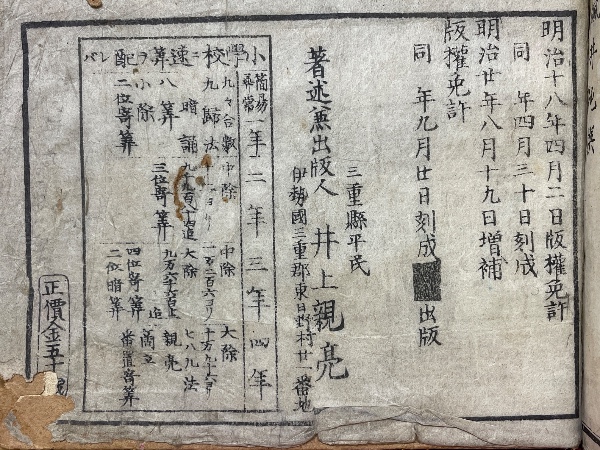 明治十八年四月二日版權免許
同 年四月三十日刻成
明治廿年八月十九日増補
版權免許
同 年九月廿日刻成 出版
三重縣平民
著述兼出版人 井上親亮
伊勢國三重郡東日野村廿一番地
簡易
尋常
一年 二年 三年 四年
小學校ニ速算ヲ配
九々合數
九歸法
暗誦
八算
小除
二位寄算
中除
三位寄算
中除
大除
四位寄算
二位暗算
大除
七八九法
親亮
番置寄算
正價金五十